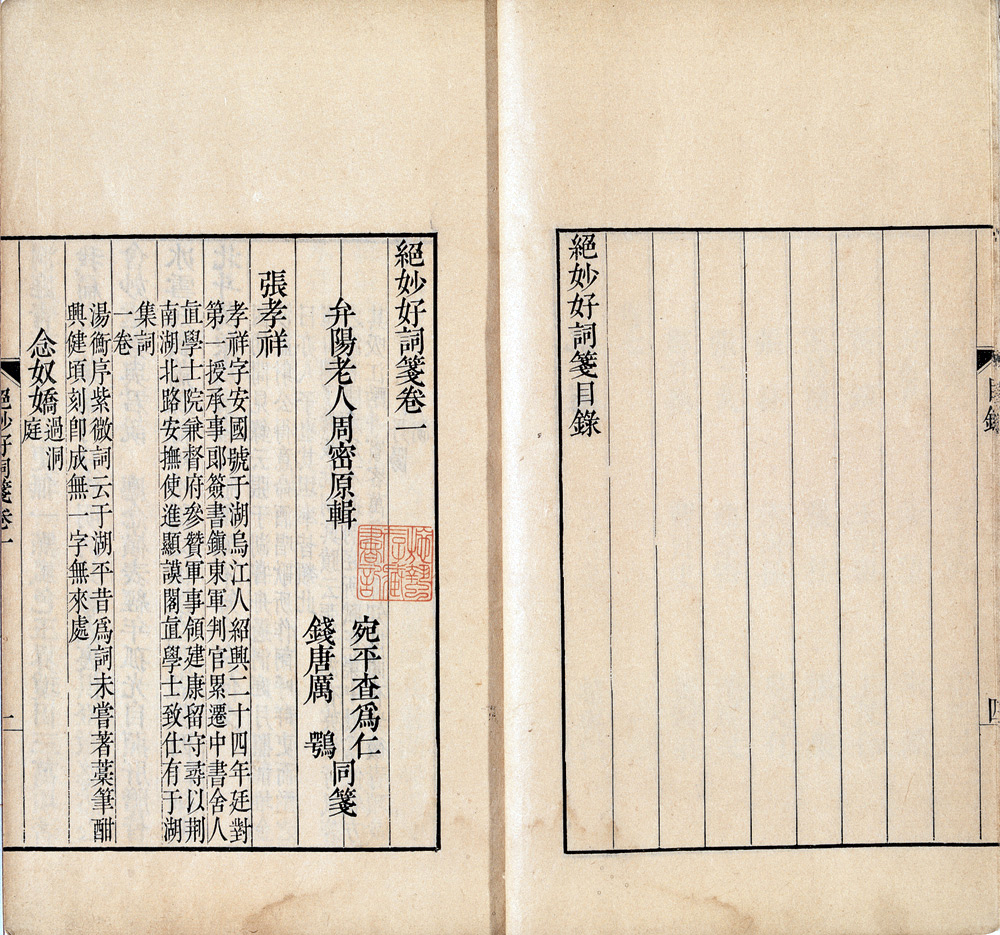 絕妙好詞箋目錄
目錄
四
絕妙好詞箋卷一
弁陽老人周密原輯
宛平查爲仁
錢唐厲鶚
同箋
張孝祥
孝祥字安國號于湖烏江人紹興二十四年廷對
第一授承事郞簽書鎭東軍判官累遷中書舍人
直學士院兼督府參贊軍事領建康留守尋以荆
南湖北路安撫使進顯謨閣直學士致仕有于湖
集詞
一卷
湯衡序紫微詞云于湖平昔爲詞未嘗著藁筆酣
興健頃刻卽成無一字無來處
念奴嬌過洞
庭
絕妙好詞箋卷一
一